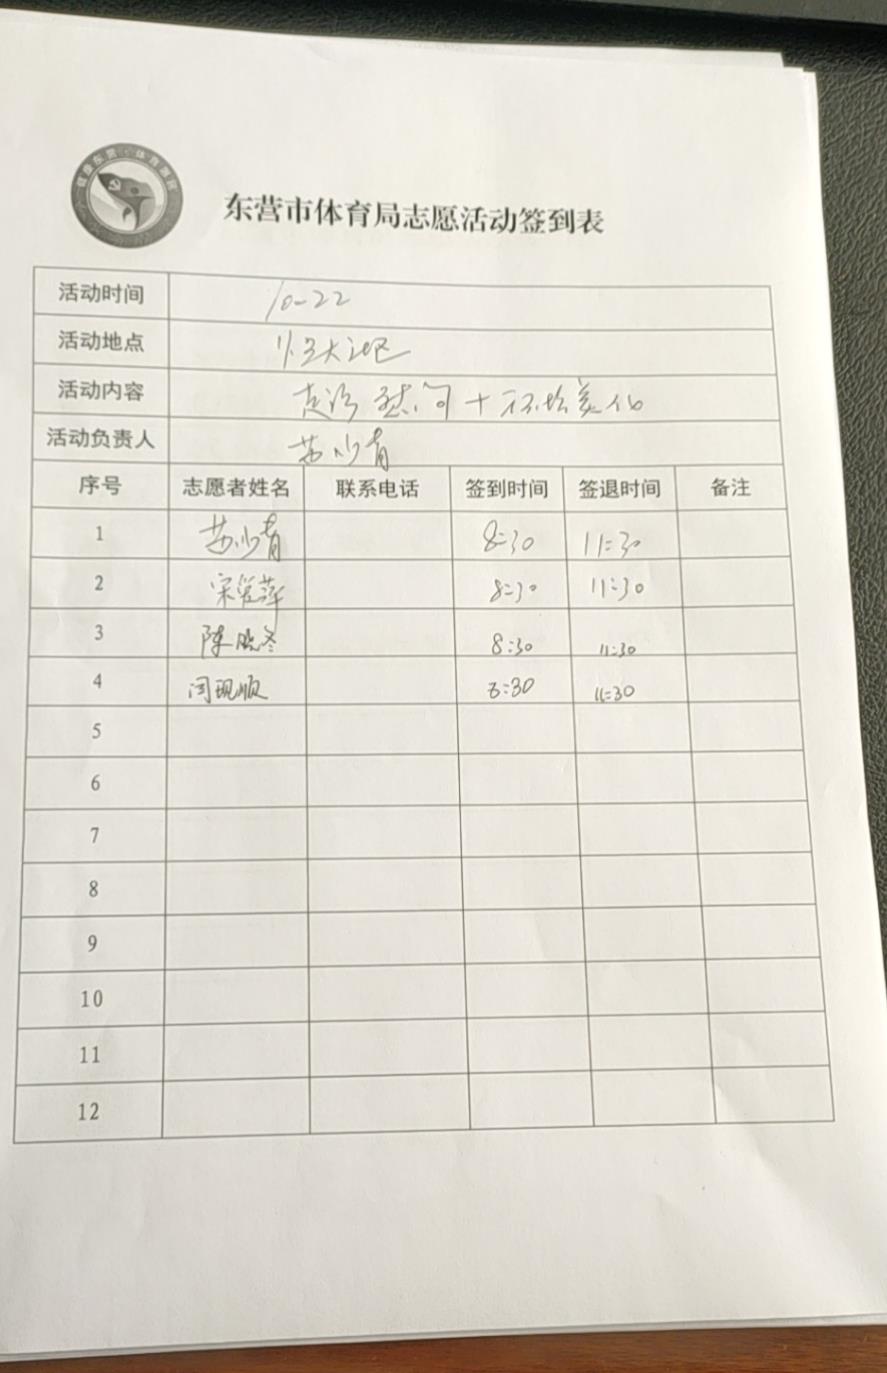 东营市体育局志愿活动签到表
活动时间 10-22
活动地点
活动内容 走访慰问+环境美化
活动负责人 苏少青
序号 志愿者姓名 联系电话 签到时间 签退时间 备注
1 苏少青 8:30 11:30
2 宋爱萍 8:30 11:30
3 陈晓冬 8:30 11:30
4 闫现顺 8:30 11:30
5
6
7
8
9
10
11
12